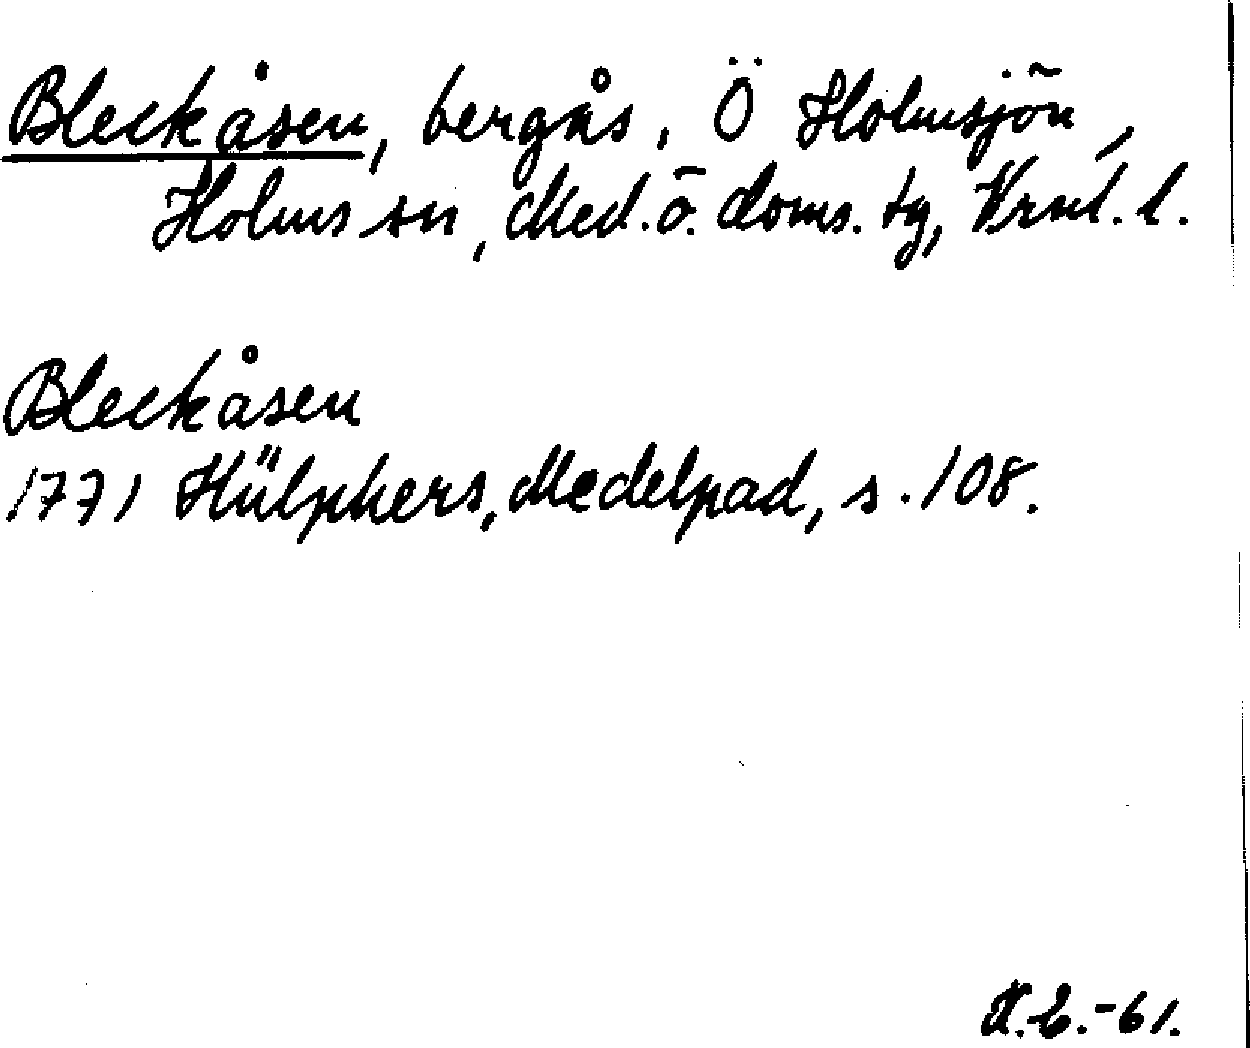 Bleckåsen, bergås, Ö Holmsjön,
Holms sn, Med. ö. doms. tg, Vrnl. l.
Bleckåsen
1771 Hülphers, Medelpad, s. 108.
-61.